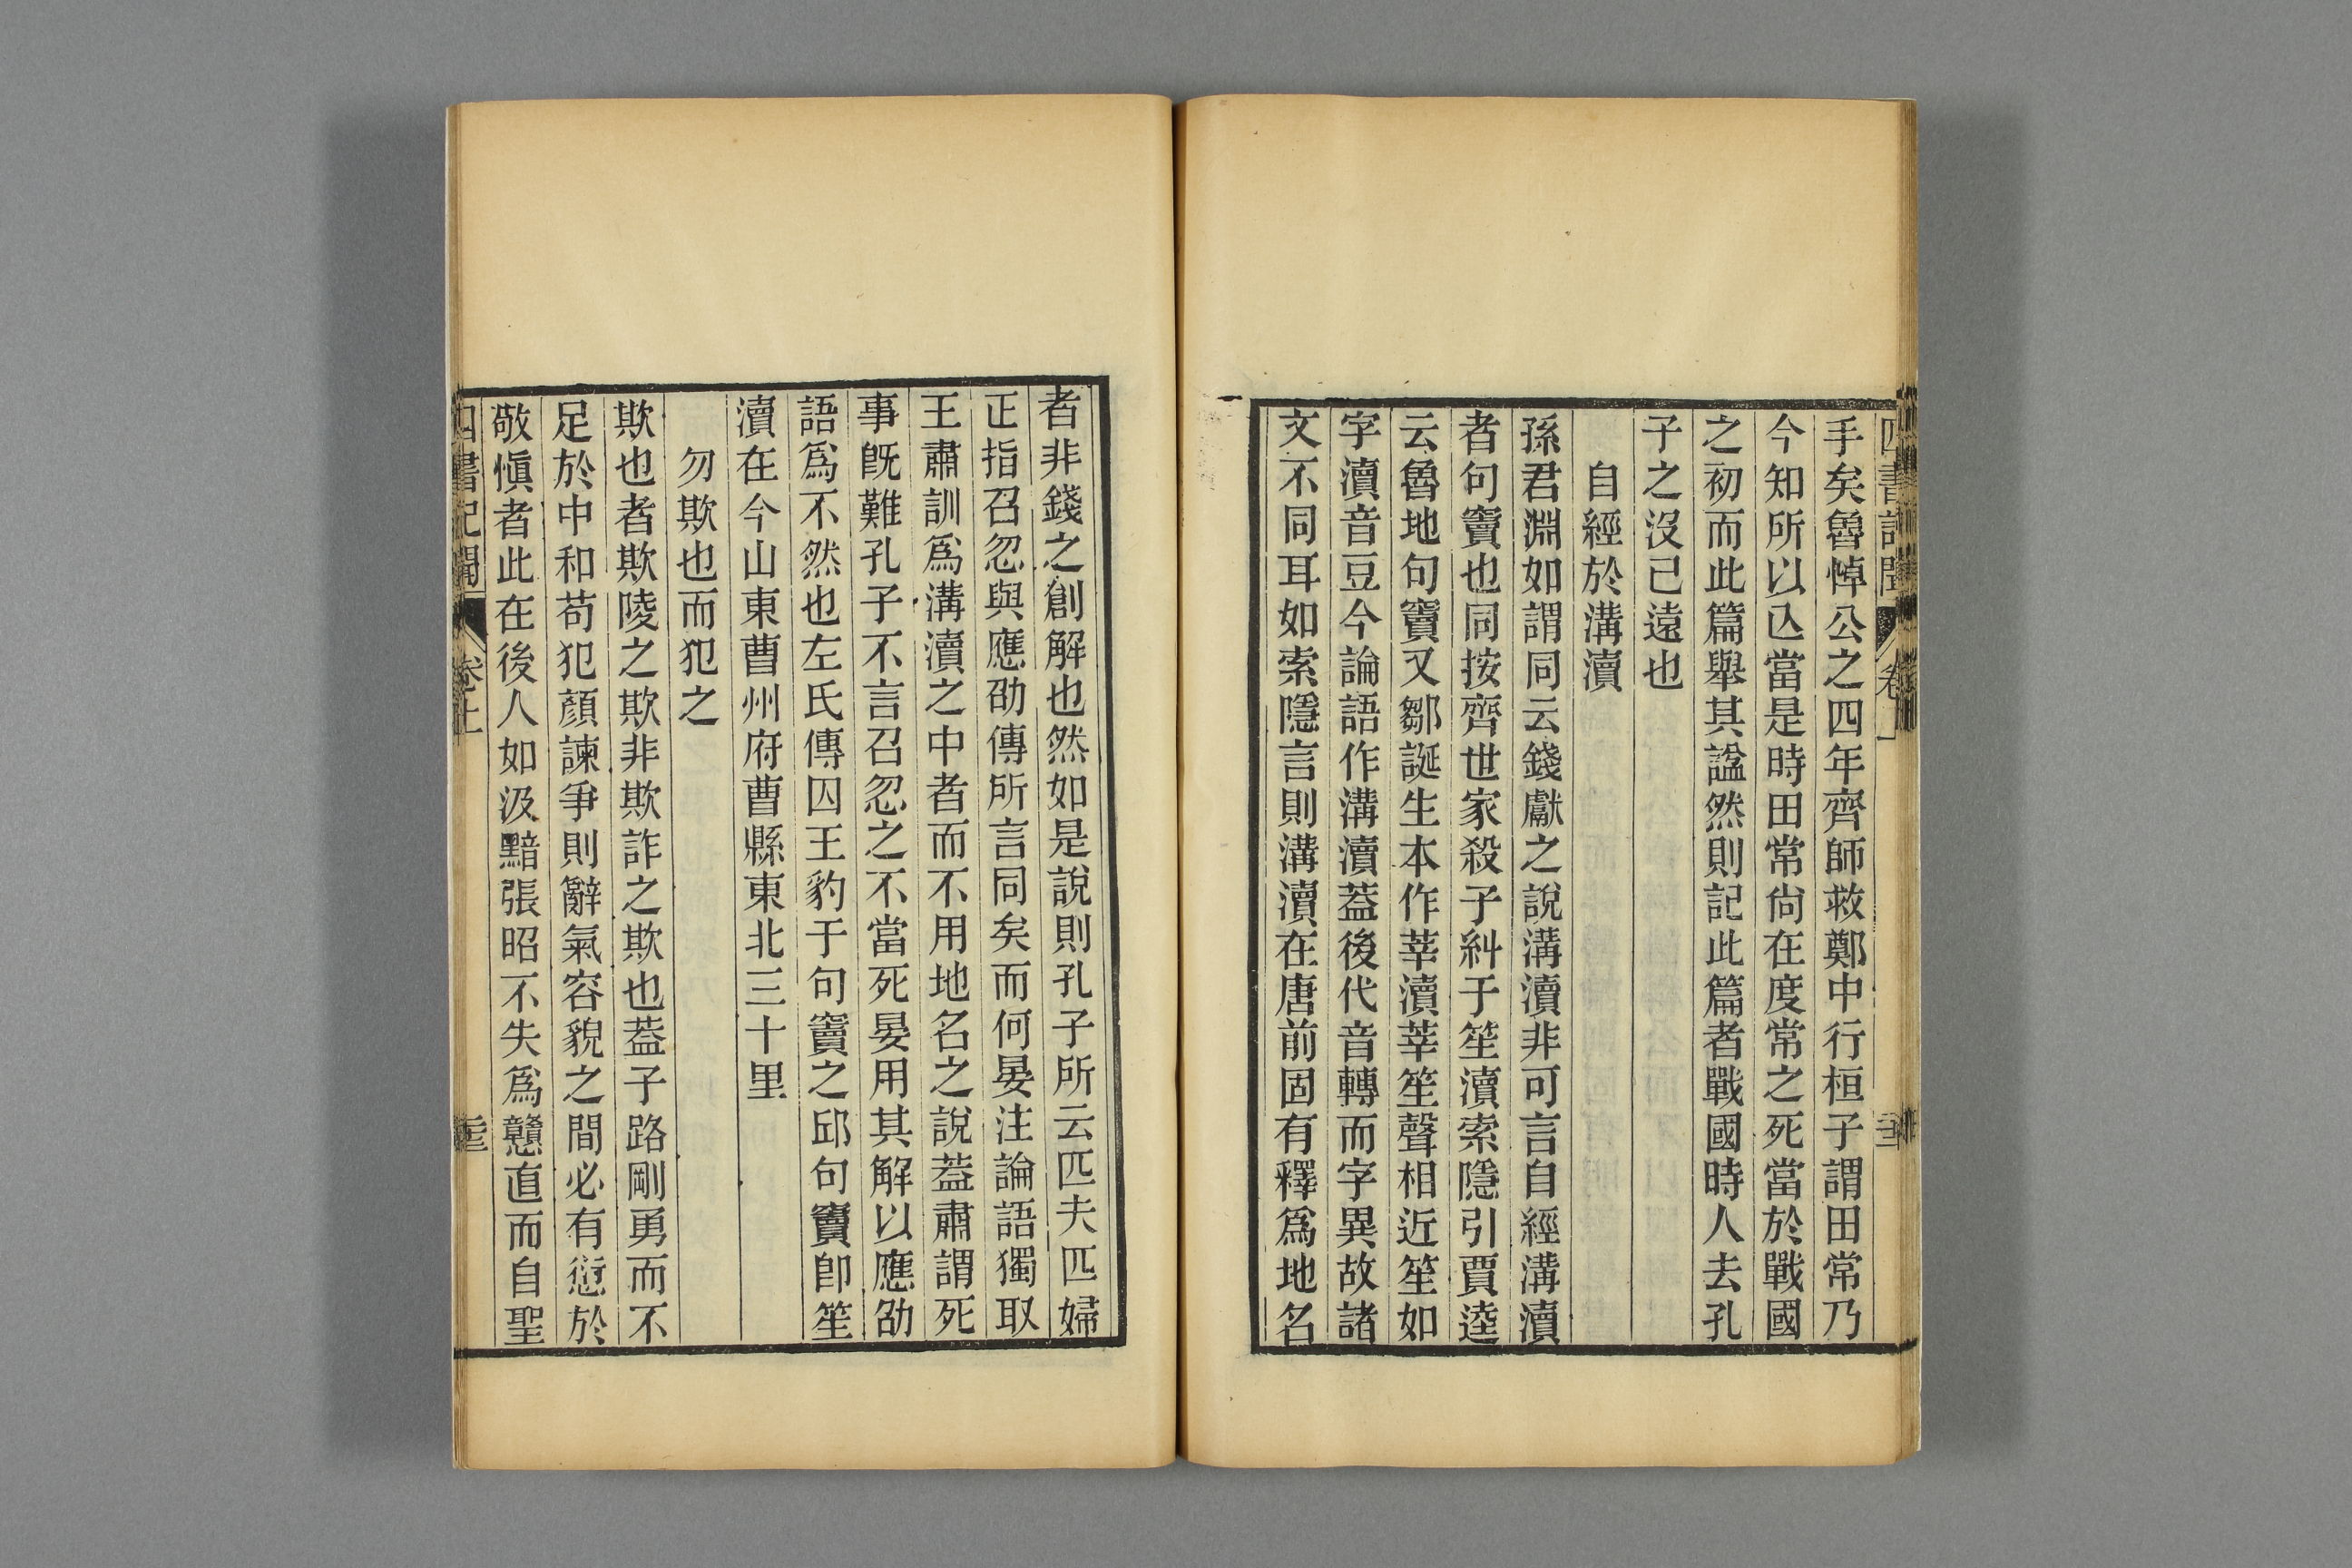 手矣魯悼公之四年齊師救鄭中行桓子謂田常乃
今知所以亾當是時田常尙在度常之死當於戰國
之初而此篇舉其諡然則記此篇者戰國時人去孔
子之沒已遠也
自經於溝瀆
孫君淵如謂同云錢獻之說溝瀆非可言自經溝瀆
者句竇也同按齊世家殺子糾于笙瀆索隱引賈逵
云魯地句竇又鄒誕生本作莘瀆莘笙聲相近笙如
字瀆音豆今論語作溝瀆葢後代音轉而字異故諸
文不同耳如索隱言則溝瀆在唐前固有釋爲地名
者非錢之創解也然如是說則孔子所云匹夫匹婦
正指召忽與應劭傳所言同矣而何晏注論語獨取
王肅訓爲溝瀆之中者而不用地名之說葢肅謂死
事旣難孔子不言召忽之不當死晏用其解以應劭
語爲不然也左氏傳囚王豹于句竇之邱句竇卽笙
瀆在今山東曹州府曹縣東北三十里
勿欺也而犯之
欺也者欺陵之欺非欺詐之欺也葢子路剛勇而不
足於中和苟犯顏諫爭則辭氣容貌之間必有愆於
敬愼者此在後人如汲黯張昭不失爲戇直而自聖
四書記聞 卷上